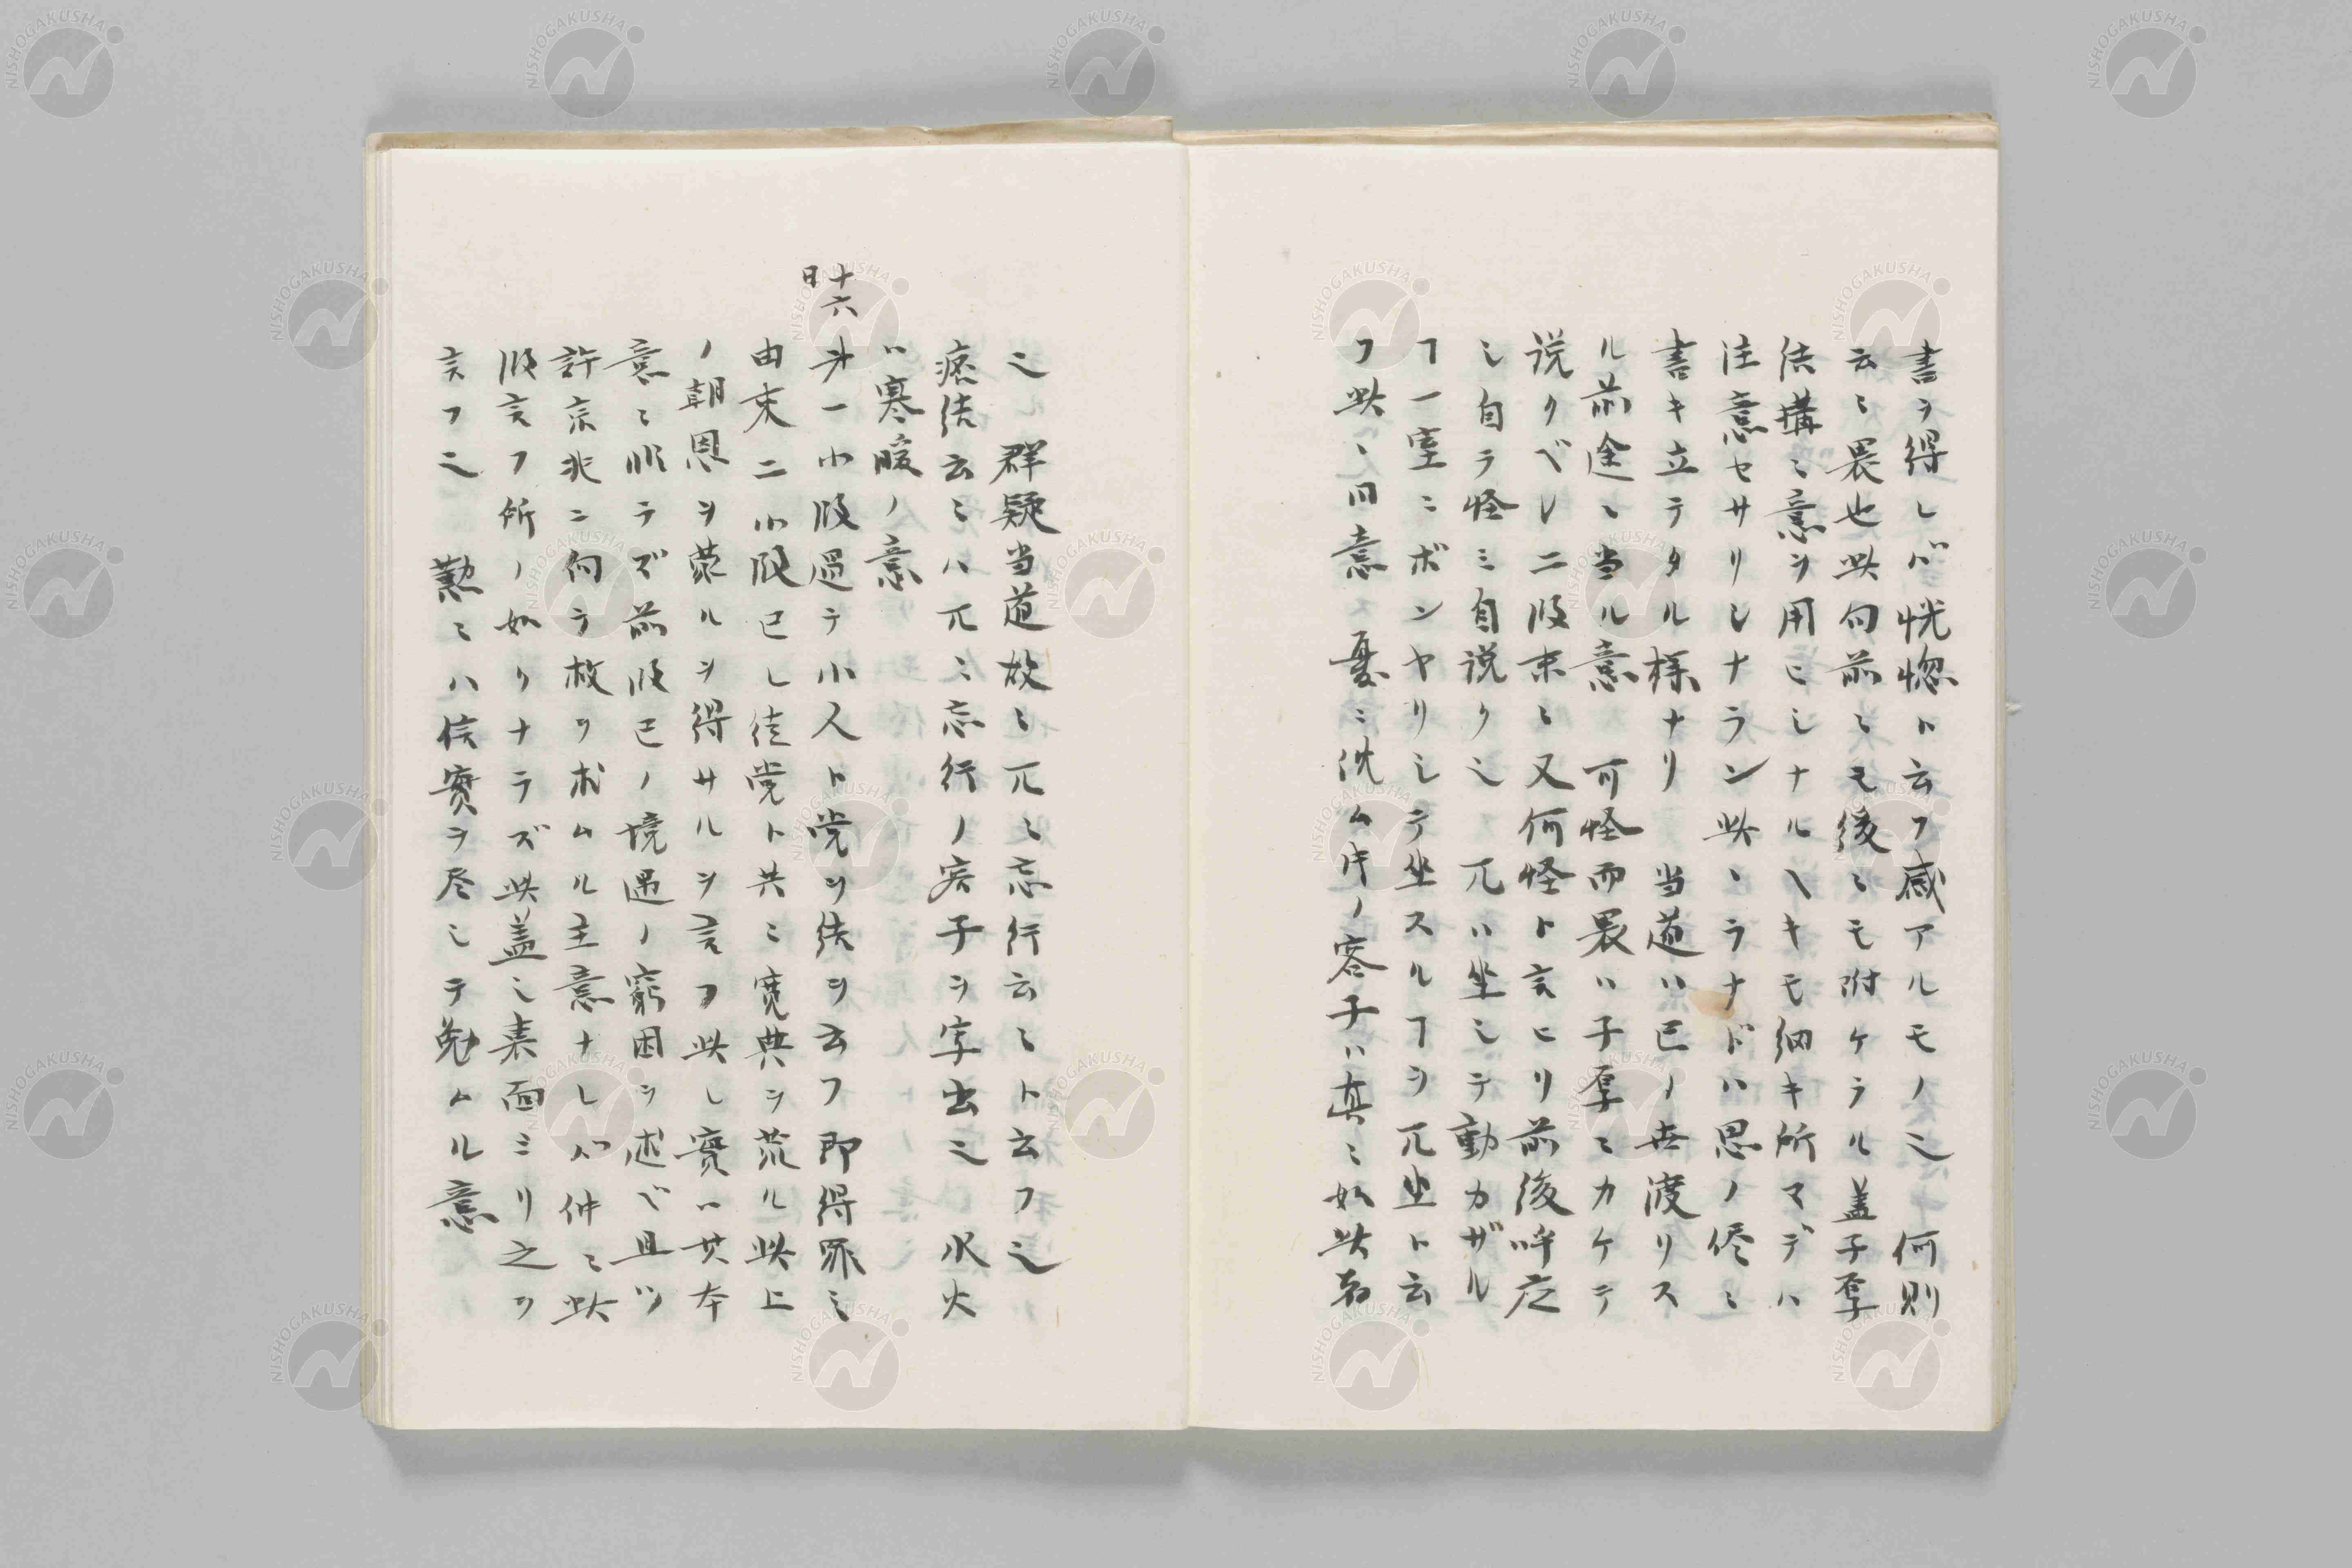 書ヲ得レバ恍惚ト云フ感アルモノ之 何則
云ミ畏也此句前ニモ後ニモ附ケラル盖子厚
結構ニ意ヲ用ヒシナルヘキモ細キ所マデハ
注意セサリシナラン此ヽラナドハ思ノ侭ニ
書キ立テタル様ナリ 当道ハ已ノ世渡リス
ル前途ニ当ル意 可怪而畏ハ子厚ニカケテ
説クベレ二段末ニ又何怪ト言ヒリ前後呼応
シ自ラ怪ミ自説ク之 兀ハ坐シテ動カザル
ヿ一室ニボンヤリシテ坐スルヿヲ兀坐ト云
フ此ニ同意 憂ニ沈ム
ノ容子ハ真ニ如此
之 群疑当道故ニ兀ミ忘行云ミト云フ之
痞結云ミハ兀ミ忘行ノ容子ヲ写出之 水火
ハ寒暖ノ意
十六日
第一小段過テ小人ト党ヲ結ヲ云フ即得罪ミ
由来二小段已レ徒党ト共ニ寛典ヲ荒ル此上
ノ朝恩ヲ蒙ルヲ得サルヲ言フ此レ實ハ其本
意ニ順テズ前段已ノ境遇ノ窮困ヲ述ベ且ツ
許京兆ニ向テ救ヲ求ムル主意ナレバ仲ミ此
段言フ所ノ如クナラズ此盖シ表面ミリ之ヲ
言フ之 懃ミハ信實ヲ尽シテ勉ムル意
NISHOGAKUSHA